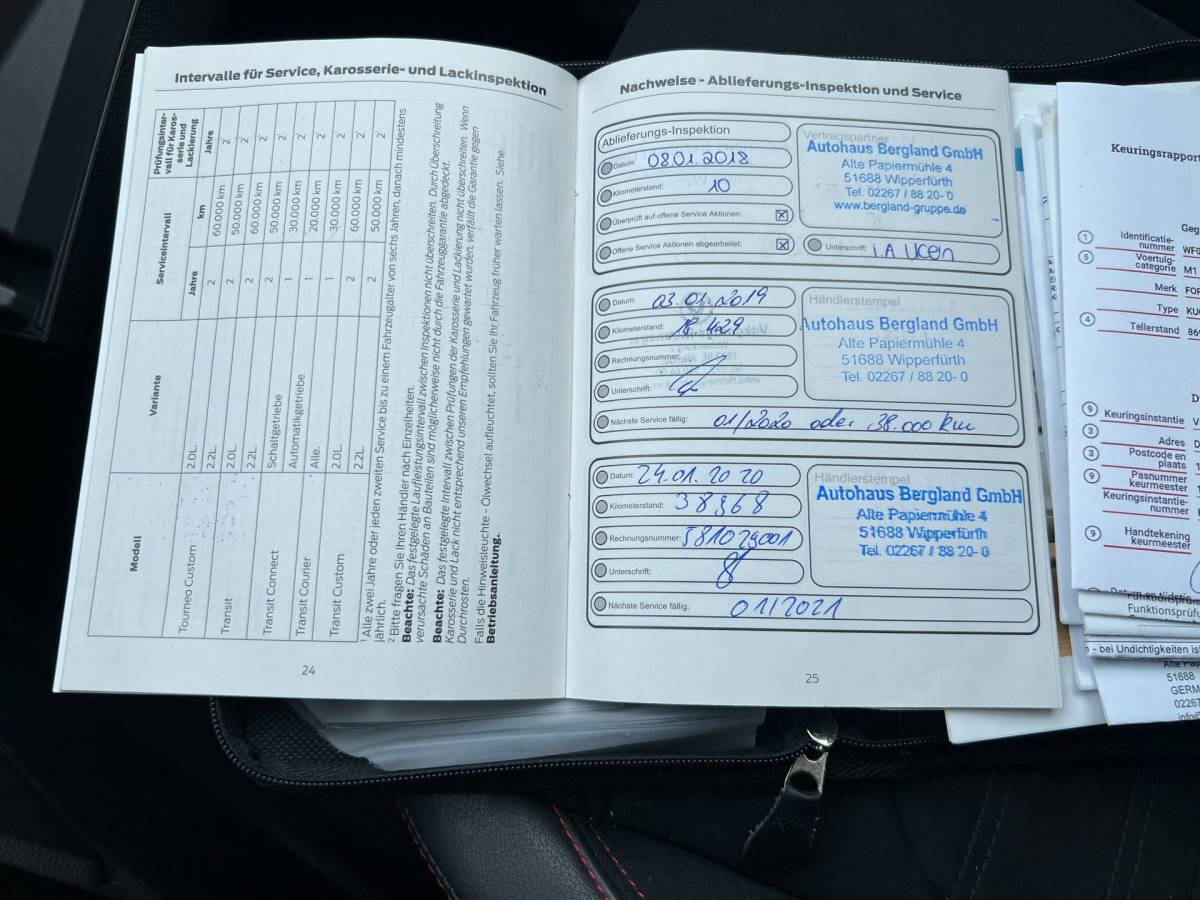 Intervalle für Service, Karosserie- und Lackinspektion
Modell Variante Serviceintervall Prüfungsinter-
vall für Karos-
serie und
Lackierung
Jahre km Jahre
Tourneo Custom 2.0L. 2 60.000 km 2
2.2L. 2 50.000 km 2
Transit 2.0L. 2 60.000 km 2
2.2L. 2 50.000 km 2
Transit Connect Schaltgetriebe
Automatikgetriebe 1 30.000 km 2
Transit Courier Alle. 1 20.000 km 2
Transit Custom 2.0L. 2 60.000 km 2
2.2L. 2 50.000 km 2
1 Alle zwei Jahre oder jeden zweiten Service bis zu einem Fahrzeugalter von sechs Jahren, danach mindestens
jährlich.
2 Bitte fragen Sie Ihren Händler nach Einzelheiten.
Beachte: Das festgelegte Laufleistungsintervall zwischen Inspektionen nicht überschreiten. Durch Überschreitung
verursachte Schäden an Bauteilen sind möglicherweise nicht durch die Fahrzeuggarantie abgedeckt.
Beachte: Das festgelegte Intervall zwischen Prüfungen der Karosserie und Lackierung nicht überschreiten. Wenn
Karosserie und Lack nicht entsprechend unseren Empfehlungen gewartet wurden, verfällt die Garantie gegen
Durchrosten.
Falls die Hinweisleuchte - Ölwechsel aufleuchtet, sollten Sie Ihr Fahrzeug früher warten lassen. Siehe
Betriebsanleitung.
24
Nachweise - Ablieferungs-Inspektion und Service
Ablieferungs-Inspektion
Datum: 08.01.2018
Kilometerstand: 10
Überprüft auf offene Service Aktionen:
Offene Service Aktionen abgearbeitet:
Vertragspartner
Autohaus Bergland GmbH
Alte Papiermühle 4
51688 Wipperfürth
Tel. 02267 / 88 20- 0
www.bergland-gruppe.de
Unterschrift: i.A Ucen
Datum: 03.01.2019
Kilometerstand: 18.429
Rechnungsnummer:
Unterschrift:
Nächste Service fällig: 01/2020 oder 38.000 km
Händlerstempel
Autohaus Bergland GmbH
Alte Papiermühle 4
51688 Wipperfürth
Tel. 02267 / 88 20- 0
Datum: 24.01.2020
Kilometerstand: 38968
Rechnungsnummer: 581029001
Unterschrift:
Nächste Service fällig: 01/2021
Händlerstempel
Autohaus Bergland GmbH
Alte Papiermühle 4
51688 Wipperfürth
Tel. 02267 / 88 20- 0
25
Keuringsrapport
Geg
1 Identificatie-
nummer WF0
5 Voertuig-
categorie M1
Merk FOR
Type KUG
4 Tellerstand 869
9 Keuringsinstantie
3 Adres
3 Postcode en
plaats
9 Pasnummer
keurmeester
Keuringsinstantie-
nummer
9 Handtekening
keurmeester
Funktionsprüfu
n - bei Undichtigkeiten ist
Alte Pa
51688
GERM
02267
info@